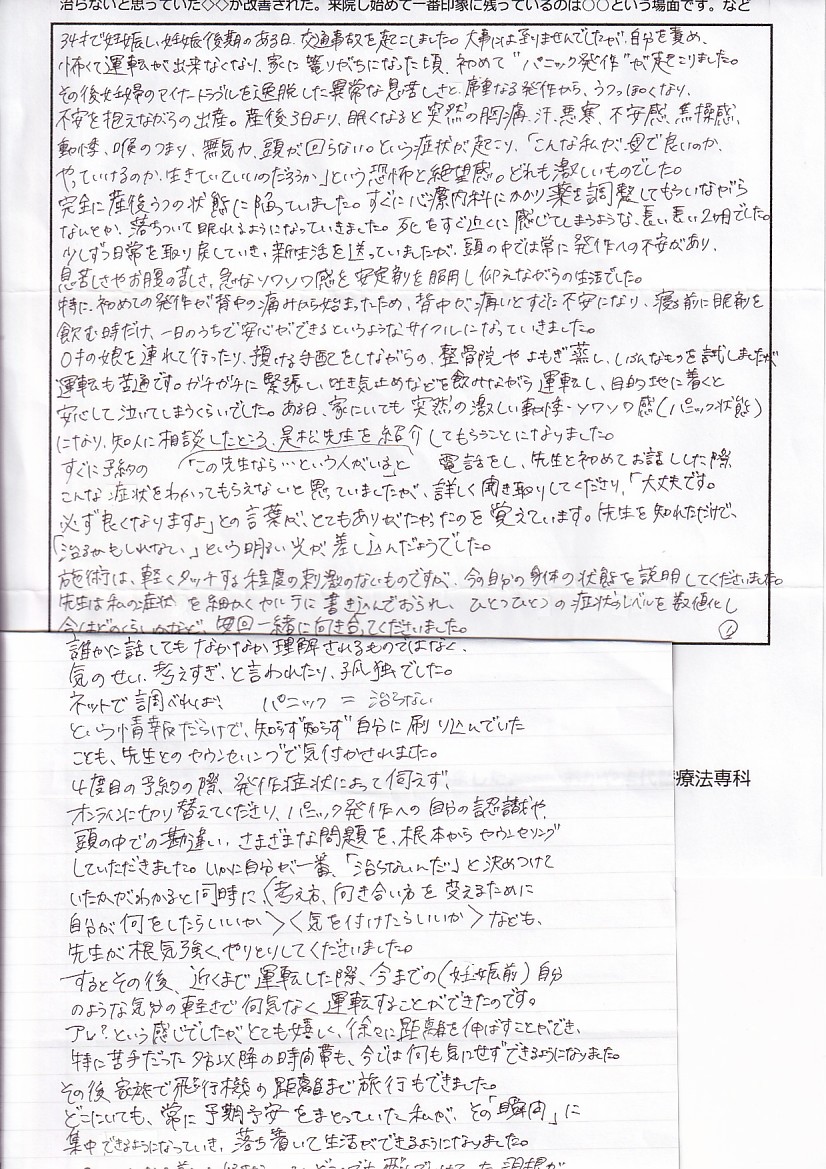 治らないと思っていた◇◇が改善された。来院し始めて一番印象に残っているのは○○という場面です。など
34才で妊娠し、妊娠後期のある日、交通事故を起こしました。大事には至りませんでしたが、自分を責め、
怖くて運転が出来なくなり、家に篭りがちになった頃、初めて"パニック発作"が起こりました。
その後妊婦のマイナートラブルを逸脱した異常な息苦しさと、度重なる発作から、うつっぽくなり、
不安を抱えながらの出産。産後3日より、眠くなると突然の胸痛、汗、悪寒、不安感、焦燥感、
動悸、喉のつまり、無気力、頭が回らない。という症状が起こり、「こんな私が母で良いのか、
やっていけるのか、生きていていいのだろうか」という恐怖と絶望感。どれも激しいものでした。
完全に産後うつの状態に陥っていました。すぐに心療内科にかかり薬を調整してもらいながら
なんとか、落ちついて眠れるようになっていきました。死をすぐ近くに感じてしまうような、長い長い2ヶ月でした。
少しずつ日常を取り戻していき、新生活を送っていましたが、頭の中では常に発作への不安があり、
息苦しさやお腹の苦しさ、急なソワソワ感を安定剤を服用し抑えながらの生活でした。
特に、初めての発作が背中の痛みから始まったため、背中が痛いとすぐに不安になり、寝る前に眠剤を
飲む時だけ、一日のうちで安心ができるというようなサイクルになっていきました。
0才の娘を連れて行ったり、預ける手配をしながらの、整骨院やよもぎ蒸し、いろんなものを試しましたが
運転も苦痛です。ガチガチに緊張し、吐き気止めなどを飲みながら運転し、目的地に着くと
安心して泣いてしまうくらいでした。ある日、家にいても突然の激しい動悸・ソワソワ感(パニック状態)
になり、知人に相談したところ、是松先生を紹介してもらうことになりました。
「この先生なら…という人がいる」と
すぐに予約の電話をし、先生と初めてお話しした際、
こんな症状をわかってもらえないと思っていましたが、詳しく聞き取りしてくださり、「大丈夫です。
必ず良くなりますよ」との言葉が、とてもありがたかったのを覚えています。先生を知れただけで、
「治るかもしれない」という明るい光が差し込んだようでした。
施術は、軽くタッチする程度の刺激のないものですが、今の自分の身体の状態を説明してくださいました。
先生は私の症状を細かくカルテに書き込んでおられ、ひとつひとつの症状のレベルを数値化し
今はどのくらいかなど、毎回一緒に向き合ってくださいました。
①
誰かに話してもなかなか理解されるものではなく、
気のせい、考えすぎ、と言われたり、孤独でした。
ネットで調べれば、 パニック = 治らない
という情報だらけで、知らず知らず自分に刷り込んでいた
ことも、先生とのカウンセリングで気付かされました。
療法専科
4度目の予約の際、発作症状によって伺えず、
オンラインに切り替えてくださり、パニック発作への自分の認識や、
頭の中での勘違い、さまざまな問題を、根本からカウンセリング
していただきました。いかに自分が一番、「治らないんだ」と決めつけて
いたかがわかると同時に、〈考え方、向き合い方を変えるために
自分が何をしたらいいか〉〈気を付けたらいいか〉なども、
先生が根気強く、やりとりしてくださいました。
するとその後、近くまで運転した際、今までの(妊娠前)自分
のような気分の軽さで何気なく運転することができたのです。
アレ?という感じでしたがとても嬉しく、徐々に距離を伸ばすことができ、
特に苦手だった夕方以降の時間帯も、今では何も気にせずできるようになりました。
その後、家族で飛行機の距離まで旅行もできました。
どこにいても、常に予期不安をまとっていた私が、その「瞬間」に
集中できるようになっていき、落ち着いて生活ができるようになりました。